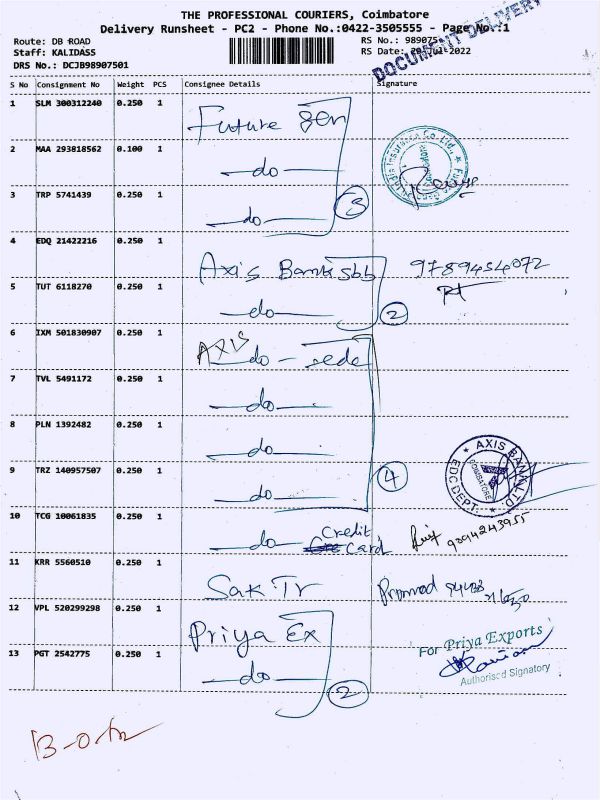 THE PROFESSIONAL COURIERS, Coimbatore
Delivery Runsheet - PC2 - Phone No.:0422-3505555 - Page No.:1
Route: DB ROAD
RS No.: 989075
Staff: KALIDASS
RS Date: 20-Jul-2022
DRS No.: DCJB98907501
DOCUMENT DELIVERY
S No Consignment No Weight PCS Consignee Details Signature
1 SLM 300312240 0.250 1 Future Gen
2 MAA 293818562 0.100 1 -do-
3 TRP 5741439 0.250 1 -do- 3
4 EDQ 21422216 0.250 1 Axis Bank sbb 9789454072
5 TUT 6118270 0.250 1 -do- 2
6 IXM 501830907 0.250 1 AXIS -do-
7 TVL 5491172 0.250 1 -do-
8 PLN 1392482 0.250 1 -do-
9 TRZ 140957507 0.250 1 -do- 4
AXIS BANK LTD.
EDC DEPT.
COIMBATORE
10 TCG 10061835 0.250 1 -do- Credit Card 9094243955
11 KRR 5560510 0.250 1 Sak Tr
12 VPL 520299298 0.250 1 Priya Ex
13 PGT 2542775 0.250 1 -do- 2
For Priya Exports
Authorised Signatory